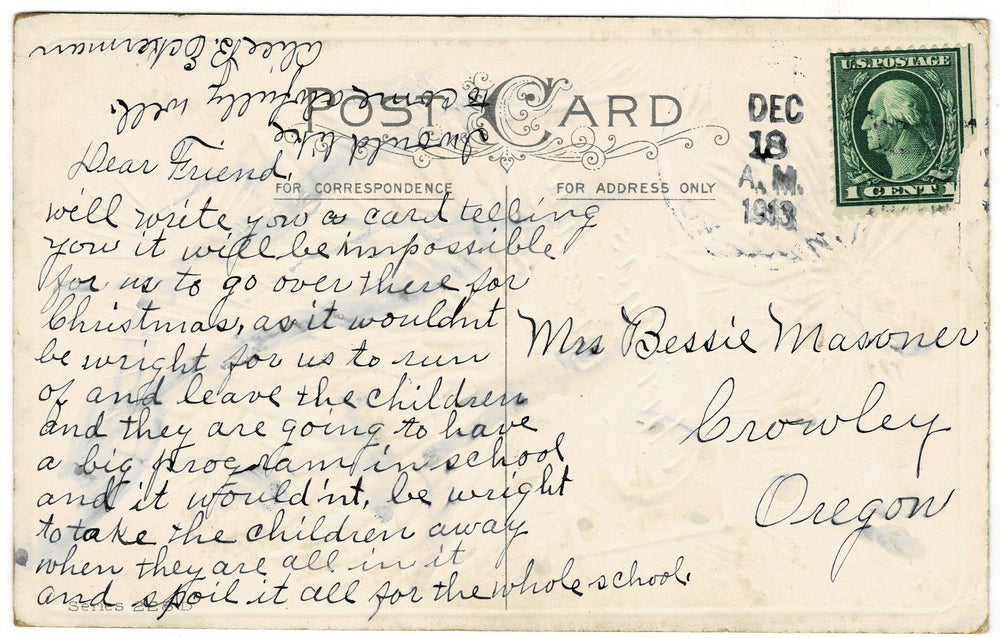 POST CARD
FOR CORRESPONDENCE
FOR ADDRESS ONLY
DEC
18
A.M.
1913
U.S. POSTAGE
1 CENT 1
Dear Friend,
will write you a card telling
you it will be impossible
for us to go over there for
Christmas, as it wouldnt
be wright for us to run
of and leave the children
and they are going to have
a big program in school
and it would'nt, be wright
to take the children away
when they are all in it
and spoil it all for the whole school.
I would like
to come awfully well.
Alice B. Eckerman
Mrs Bessie Masoner
Crowley
Oregon
Series